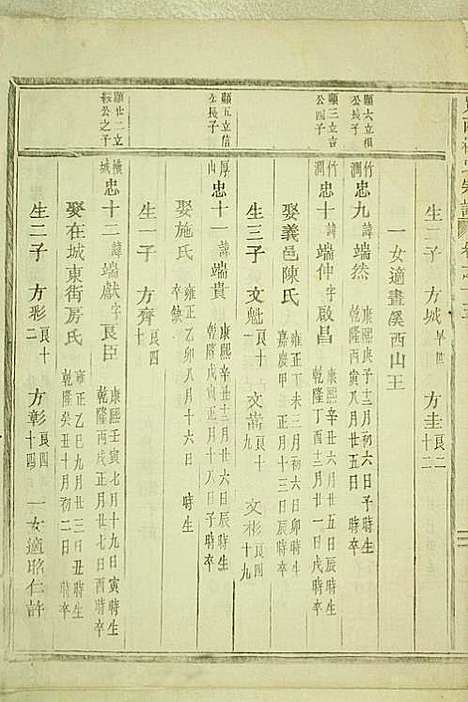 生二子 方城 早世 方圭 良二十
一女適畫溪西山王
顯六立植公長子
竹澗忠九 諱端然 康熙庚子十二月初六日子時生 乾隆丙寅六月廿五日 時卒
顯三立吉公四子
竹澗忠十 諱端仲字啟昌 康熙辛丑六月廿八日辰時生 乾隆丁酉十二月廿一日戌時卒
娶義邑陳氏 雍正丁未三月初六日卯時生 嘉慶丁巳十二月初三日辰時卒
生三子 文魁 良十一 文嵩 良十九 文彬 良四十九
顯五立信公長子
厚山忠十一 諱端貴 康熙辛丑十二月廿六日辰時生
娶施氏 雍正乙卯八月十六日 時生 卒缺
生一子 方齊 良四十
顯廿二立公之子
橫城忠十二 諱端獻字良臣 康熙壬寅七月十九日寅時生 乾隆丙戌正月廿七日酉時卒
娶在城東街房氏 雍正乙巳九月廿三日丑時生 乾隆癸丑十月初二日 時卒
生二子 方彤 良十二 方彰 良四十四 一女適昭仁許